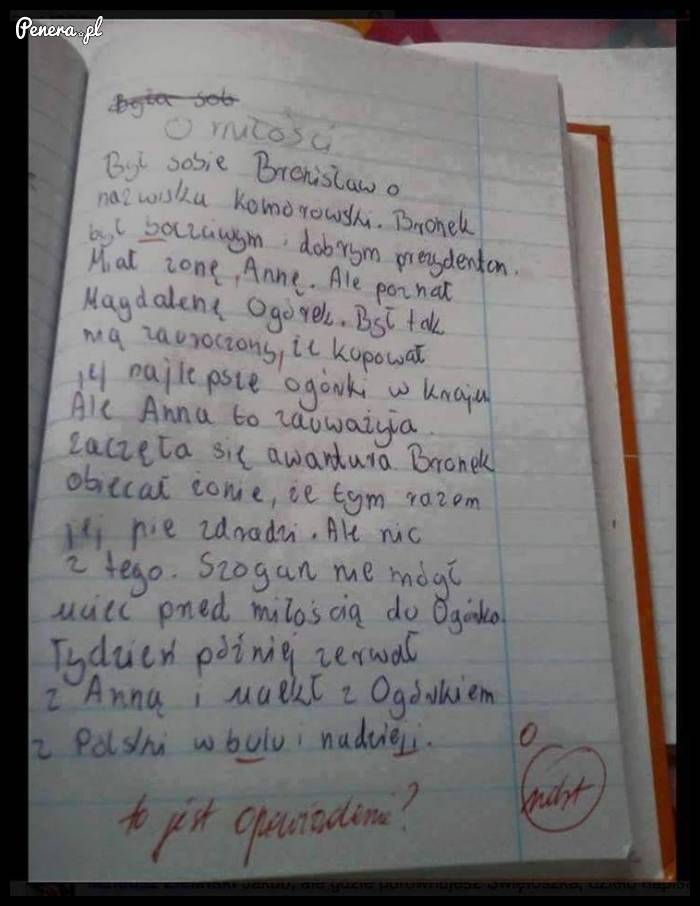 Penera.pl
Była sob
O miłości
Był sobie Bronisław o
nazwisku Komorowski. Bronek
był boczciwym i dobrym prezydentem.
Miał żonę, Annę. Ale poznał
Magdalenę Ogórek. Był tak
nią zauroczony, że kupował
jej najlepsze ogórki w kraju
Ale Anna to zauważyła.
Zaczęła się awantura Bronek
obiecał żonie, że tym razem
jej nie zdradzi. Ale nic
z tego. Szogun nie mógł
uciec przed miłością do Ogórka.
Tydzień później zerwał
z Anną i uciekł z Ogórkiem
z Polski w bulu i nadzieji.
to jest opowiadanie?
0
ndst